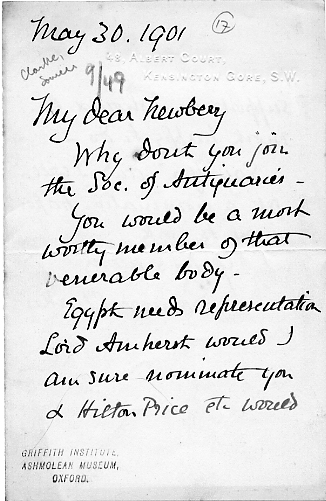 May 30. 1901
17
48, Albert Court,
Kensington Gore, S.W.
Clarke,
Somers
9/49
My dear Newbery
Why don't you join
the Soc. of Antiquaries -
You would be a most
worthy member of that
venerable body -
Egypt needs representation
Lord Amherst would I
am sure nominate you
& Hilton Price etc would
GRIFFITH INSTITUTE,
ASHMOLEAN MUSEUM,
OXFORD.